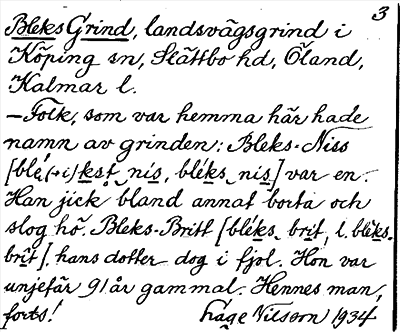 3
Bleks Grind, landsvägsgrind i
Köping sn, Slättbo hd, Öland,
Kalmar l.
—Folk, som var hemma här hade
namn av grinden: Bleks-Niss
[blé,(→i)kst nís, bléks nis] var en.
Han jick bland annat borta och
slog hö. Bleks-Britt [bléks brit, l. blèks-
brît]. hans dotter dog i fjol. Hon var
unjefär 91 år gammal. Hennes man,
forts! Håge Nilsson 1934